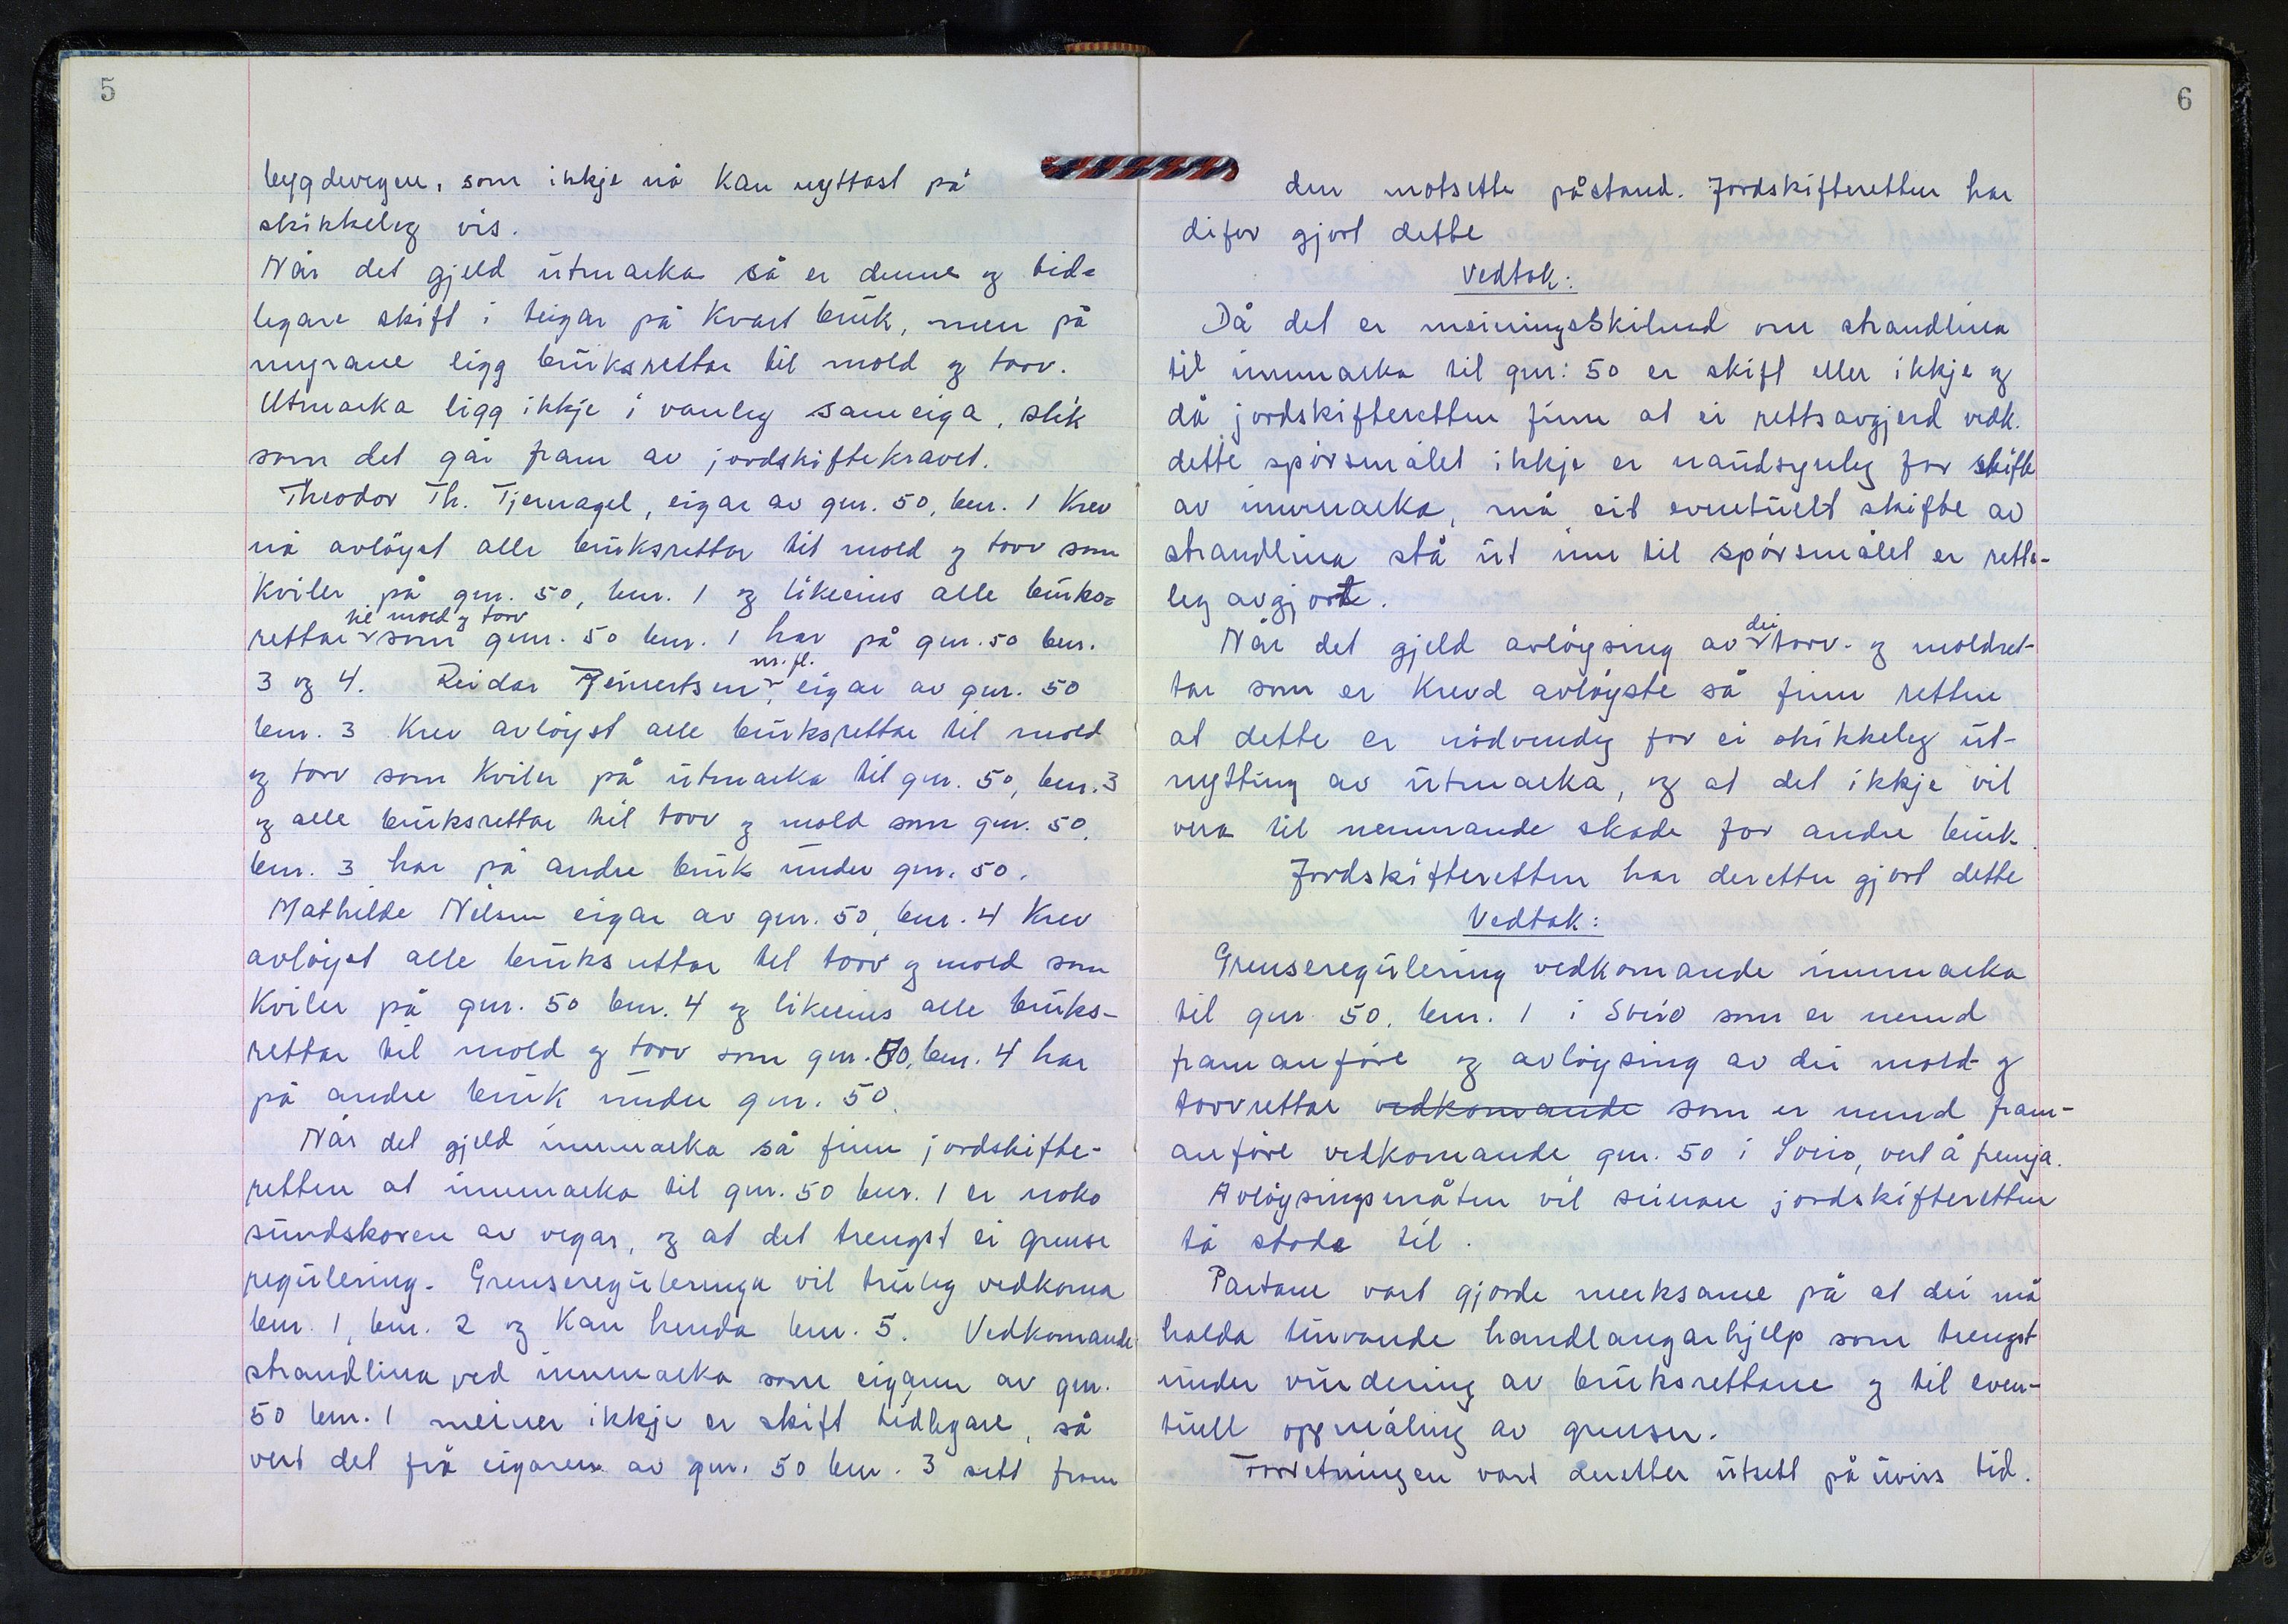 5
bygdevegen, som ikkje nå kan nyttast på
skikkeleg vis.
Når det gjeld utmarka så er denne og tid-
legare skift i teigar på kvart bruk, men på
myrane ligg bruksrettar til mold og torv.
Utmarka ligg ikkje i vanleg sameiga, slik
som det går fram av jordskiftekravet.
Theodor Th. Tjernagel, eigar av gnr. 50, bnr. 1 krev
nå avløyst alle bruksrettar til mold og torv som
kviler på gnr. 50, bnr. 1 og likeeins alle bruks-
til mold og torv
rettar som gnr. 50 bnr. 1 har på gnr. 50 bnr.
m. fl.
3 og 4. Reidar Reinertsen, eigar av gnr. 50
bnr. 3 krev avløyst alle bruksrettar til mold
og torv som kviler på utmarka til gnr. 50, bnr. 3
og alle bruksrettar til torv og mold som gnr. 50,
bnr. 3 har på andre bruk under gnr. 50.
Mathilde Nilsen eigar av gnr. 50, bnr. 4 krev
avløyst alle bruksrettar til torv og mold som
kviler på gnr. 50 bnr. 4 og likeeins alle bruks-
rettar til mold og torv som gnr. 50, bnr. 4 har
på andre bruk under gnr. 50.
Når det gjeld innmarka så finn jordskifte-
retten at innmarka til gnr. 50 bnr. 1 er noko
sundskoren av vegar, og at det trengst ei grense
regulering. Grensereguleringa vil truleg vedkoma
bnr. 1, bnr. 2 og kan henda bnr. 5. Vedkomande
strandlina ved innmarka som eigaren av gnr.
50 bnr. 1 meiner ikkje er skift tidlegare, så
vert det frå eigaren av gnr. 50 bnr. 3 sett fram
6
den motsette påstand. Jordskifteretten har
difor gjort dette
Vedtak:
Då det er meiningsskilnad om strandlina
til innmarka til gnr: 50 er skift eller ikkje og
då jordskifteretten finn at ei rettsavgjerd vedk.
dette spørsmålet ikkje er naudsynleg for skifte
av innmarka, må eit eventuelt skifte av
strandlina stå ut inn til spørsmålet er retts-
leg avgjort.
dei
Når det gjeld avløysing av torv- og moldret-
tar som er krevd avløyste så finn retten
at dette er nødvendig for ei skikkeleg ut-
nytting av utmarka, og at det ikkje vil
vera til nemnande skade for andre bruk.
Jordskifteretten har deretter gjort dette
Vedtak:
Grenseregulering vedkomande innmarka
til gnr 50, bnr. 1 i Sveio som er nemnd
framanføre og avløysing av dei mold- og
torvrettar vedkomande som er nemnd fram-
anføre vedkomande gnr. 50 i Sveio, vert å fremja.
Avløysingsmåten vil seinare jordskifteretten
ta stode til.
Partane vart gjorde merksame på at dei må
halda turvande handlangarhjelp som trengst
under vurdering av bruksrettane og til even-
tuell oppmåling av grenser.
Forretningen vart deretter utsett på uviss tid.